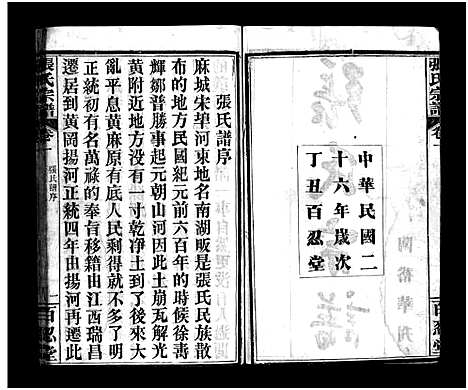 張氏宗譜
卷一
中華民國二
十六年歲次
丁丑百忍堂
百忍堂
張氏譜序
麻城宋埠河東地名南湖畈是張氏民族散
布的地方民國紀元前六百年的時候徐壽
輝鄒普勝事起元朝山河因此土崩瓦解光
黃附近地方沒有一寸乾凈土到了後來大
亂平息黃麻原有底人民剩得就不多了明
正統初有名萬祿的奉旨移籍由江西瑞昌
遷居到黃岡揚河正統四年由揚河再遷此
張氏宗譜
卷一
張氏譜序
一
百忍堂